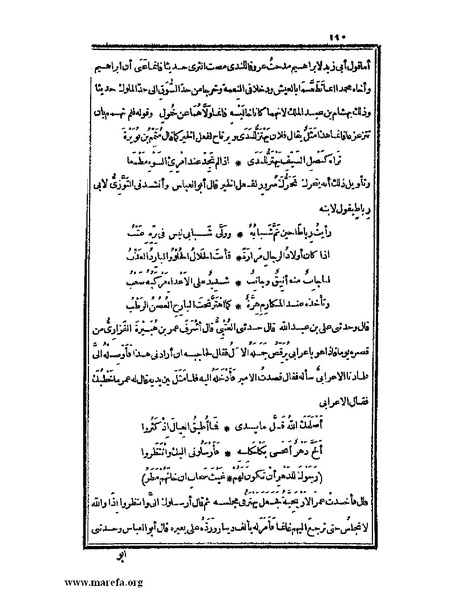 ١٩٠
أما قول أبي زيد لابراهيم مدحت عروقا للندى مصت الثرى حديثا فانما عنى أن ابراهيم
وأخاه محمدا انما تطعما بالعيش ودخلا في النعمة وخرجا من حد السوق الى حد الملوك حديثا
وذلك بهشام بن عبد الملك لانهما كانا خاليه فانما ولاهما عن خمول وقوله فلم تهمم بان
تتزعزعا فانما هذا مثل يقال فلان يهتز للندى ويرتاح لفعل الخير كما قال متمم بن نويرة
تراه كنصل السيف يهتز للندى * اذا لم تجد عند امرئ السوء مطمعا
وتأويل ذلك أنه يتحرك تحرك سرور لفعل الخير قال أبو العباس وأنشدني التوزي لابي
رباط يقول لابنه
رأيت رباطا حين تم شبابه * وولى شبابي ليس في بره عتب
اذا كان أولاد الرجال مرارة * فأنت الحلال الحلو والبارد العذب
لنا جانب منه أنيق وجانب * شديد على الاعداء مركبه صعب
وتأخذه عند المكارم هزة * كما اهتز تحت البارح الغصن الرطب
قال وحدثني علي بن عبد الله قال حدثني العتبي قال أشرف عمر بن هبيرة الفزاري من
قصره يوما فاذا هو باعرابي يرقص جمله الآل فقال لحاجبه ان أرادني هذا فأوصله الي
فلما دنا الاعرابي سأله فقال قصدت الامير فأدخله اليه فلما مثل بين يديه قال له عمر ما خطبك
فقال الاعرابي
أصلحك الله قل ما بيدي * فما أطيق العيال اذ كثروا
ألح دهر أنحى بكلكله * فأرسلوني اليك وانتظروا
(رجوك للدهر أن تكون لهم * غيث سحاب ان خانهم مطر)
قال فأخذت عمر الاريحية فجعل يهتز في مجلسه ثم قال أرسلوك الي وانتظروا اذا والله
لا تجلس حتى ترجع اليهم غانما فأمر له بألف دينار ورده على بعيره قال أبو العباس وحدثني
أبو
www.marefa.org